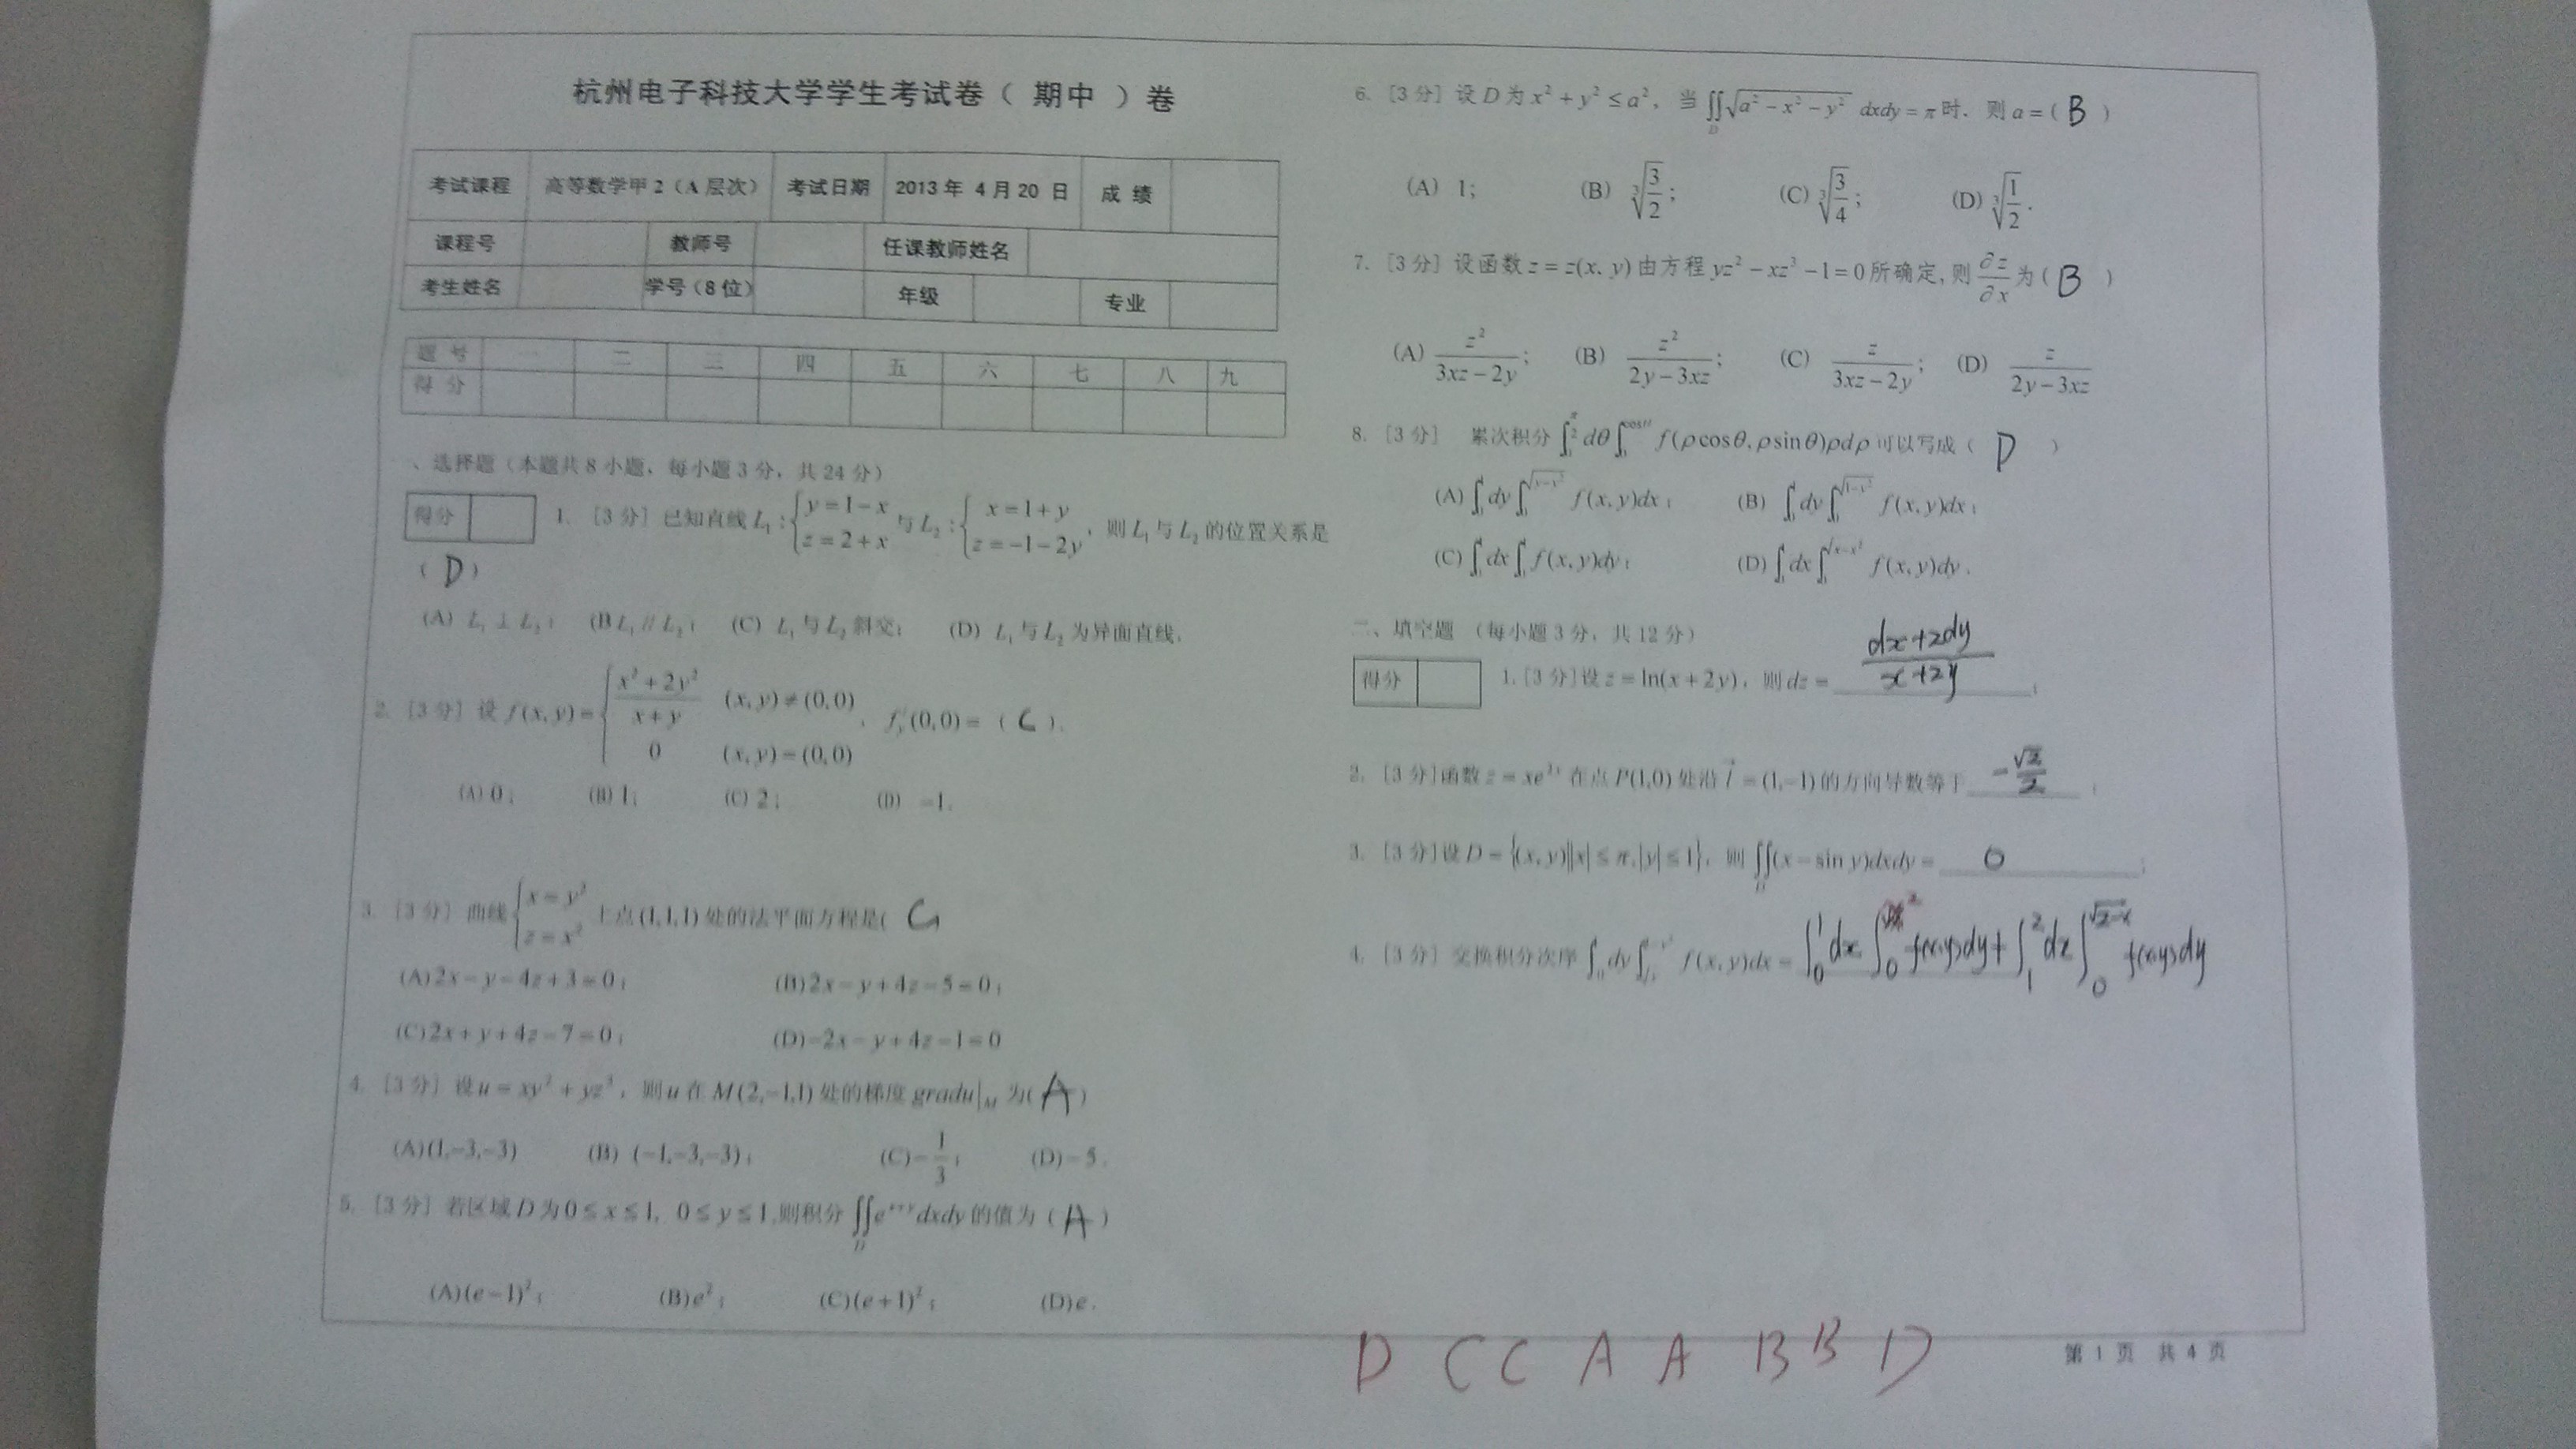 杭州电子科技大学学生考试卷（ 期中 ）卷
考试课程 高等数学甲2（A 层次） 考试日期 2013 年 4 月 20 日 成 绩
课程号 教师号 任课教师姓名
考生姓名 学号（8 位） 年级 专业
题 号 一 二 三 四 五 六 七 八 九
得 分
、选择题（本题共 8 小题，每小题 3 分，共 24 分）
得分
1. [3 分] 已知直线 L₁ : { y = 1 − x, z = 2 + x 与 L₂ : { x = 1 + y, z = −1 − 2y ，则 L₁ 与 L₂ 的位置关系是
( D )
(A) L₁ ⊥ L₂ ; (B L₁ // L₂ ; (C) L₁ 与 L₂ 斜交; (D) L₁ 与 L₂ 为异面直线.
2. [3 分] 设 f(x, y) = { (x² + 2y²)/(x + y) (x, y) ≠ (0,0), 0 (x, y) = (0,0) , f_y'(0,0) = ( C ).
(A) 0 ; (B) 1; (C) 2 ; (D) −1.
3. [3 分] 曲线 { x = y², z = x² 上点 (1,1,1) 处的法平面方程是( C
(A) 2x − y − 4z + 3 = 0 ; (B) 2x − y + 4z − 5 = 0 ;
(C) 2x + y + 4z − 7 = 0 ; (D) −2x − y + 4z − 1 = 0
4. [3 分] 设 u = xy² + yz³ ，则 u 在 M(2,−1,1) 处的梯度 gradu|_M 为( A )
(A) (1,−3,−3) (B) (−1,−3,−3) ; (C) −1/3 ; (D) −5 .
5. [3 分] 若区域 D 为 0 ≤ x ≤ 1, 0 ≤ y ≤ 1,则积分 ∬_D e^{x+y} dxdy 的值为 ( A )
(A) (e − 1)² ; (B) e² ; (C) (e + 1)² ; (D) e .
6. [3 分] 设 D 为 x² + y² ≤ a², 当 ∬_D √(a² − x² − y²) dxdy = π 时, 则 a = ( B )
(A) 1; (B) ∛(3/2) ; (C) ∛(3/4) ; (D) ∛(1/2) .
7. [3 分] 设函数 z = z(x, y) 由方程 yz² − xz³ − 1 = 0 所确定, 则 ∂z/∂x 为 ( B )
(A) z²/(3xz − 2y) ; (B) z²/(2y − 3xz) ; (C) z/(3xz − 2y) ; (D) z/(2y − 3xz)
8. [3 分] 累次积分 ∫₀^{π/2} dθ ∫₀^{cosθ} f(ρcosθ, ρsinθ)ρdρ 可以写成 ( D )
(A) ∫₀¹ dy ∫₀^{√(y−y²)} f(x, y)dx ; (B) ∫₀¹ dy ∫₀^{√(1−y²)} f(x, y)dx ;
(C) ∫₀¹ dx ∫₀¹ f(x, y)dy ; (D) ∫₀¹ dx ∫₀^{√(x−x²)} f(x, y)dy .
二、填空题 （每小题 3 分，共 12 分）
得分
1. [3 分] 设 z = ln(x + 2y) ，则 dz = (dx+2dy)/(x+2y) ;
2. [3 分] 函数 z = xe^{2y} 在点 P(1,0) 处沿 l = (1,−1) 的方向导数等于 −√2/2 ;
3. [3 分] 设 D = {(x, y)||x| ≤ π, |y| ≤ 1}, 则 ∬_D (x − sin y)dxdy = 0 ;
4. [3 分] 交换积分次序 f(x, y)dx = ∫₀¹ dx ∫₀ f(x,y)dy + ∫₁² dx ∫₀^{√(2−x)} f(x,y)dy
D C C A A B B D
第 1 页 共 4 页